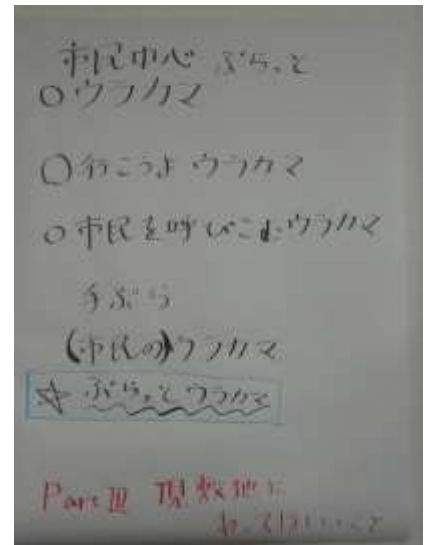 市民中心 ぶらっと
○ウラカマ
○行こうよ ウラカマ
○市民を呼びこむウラカマ
手ぶら
(市民の)ウラカマ
☆ ぶらっとウラカマ
Part Ⅲ 現敷地に